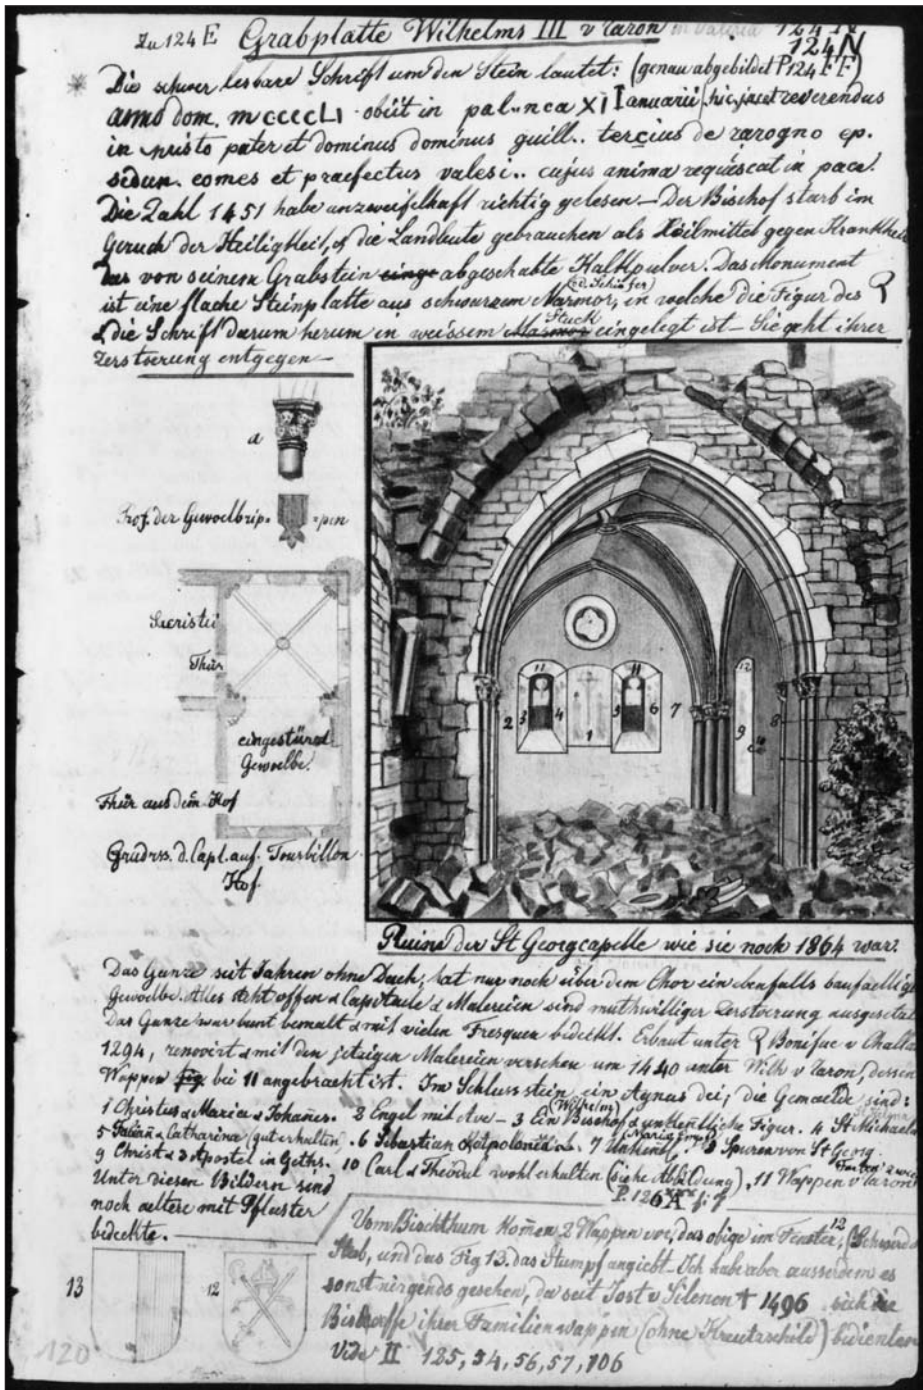 Zu 124 E Grabplatte Wilhelms III v Raron in Valeria 124 N
124 N
Die schwer lesbare Schrift um den Stein lautet: (genau abgebildet P 124 FF)
anno dom. mccccLi obiit in pal..nca XI Ianuarii hic jacet reverendus
in xpisto pater et dominus dominus guill.. tercius de rarogno ep.
sedun. comes et praefectus valesi.. cujus anima requiescat in pace.
Die Zahl 1451 habe unzweifelhaft richtig gelesen — Der Bischof starb im
Geruch der Heiligkeit, & die Landleute gebrauchen als Heilmittel gegen Krankheit
das von seinem Grabstein einge abgeschabte Kalkpulver. Das Monument
ist eine flache Steinplatte aus schwarzem Marmor, (od. Schiefer) in welche die Figur des
& die Schrift darum herum in weissem Marmor Stuck eingelegt ist — Sie geht ihrer
Zerstoerung entgegen —
a
Prof. der Gewoelbrip- -pen
Sacristei
Thür
eingestürzt
Gewoelbe.
Thür aus dem Hof
Grudrss. d. Capl. auf Tourbillon
Hof
11 11 12
2 3 4 1 5 6 7 9 8
Ruine der St Georgcapelle wie sie noch 1864 war.
Das Ganze seit Jahren ohne Dach, hat nur noch über dem Chor ein ebenfalls baufaellige
Gewoelbe. Alles steht offen & Capitaele & Malereien sind muthwilliger Zerstoerung ausgesetzt
Das Ganze war bunt bemalt & mit vielen Fresquen bedeckt. Erbaut unter Bonifac v Challa
1294, renovirt & mit den jetzigen Malereien versehen um 1440 unter Wilh v Raron, dessen
Wappen fig bei 11 angebracht ist. Im Schlussstein ein Agnus dei; die Gemaelde sind:
1 Christus & Maria & Johañes. 2 Engel mit Ave — 3 Ein Bischof (Wilhelm) & unkeñtliche Figur. 4 St Michael
5 & Catharina (gut erhalten). 6 Sebastian & 7 Unkentl. 8 Spuren von St Georg.
9 Christ & 3 Apostel in Geths. 10 Carl & Theodul wohl erhalten (siehe Abbildung), 11 Wappen v Raron
P. 126
Unter diesen Bildern sind
noch aeltere mit Pflaster
bedeckte. —
Vom Bisthum komen 2 Wappen vor, das obige im Fenster, 12 (Schwerd &
Stab, und das Fig 13. das Stumpf angiebt. Ich habe aber ausserdem es
sonst nirgends gesehen, da seit Jost v Silenen † 1496 sich die
Bischoeffe ihrer Familienwappen (ohne Kreutzschild) bedienten
Vide II 185, 54, 56, 57, 106
13 12
120